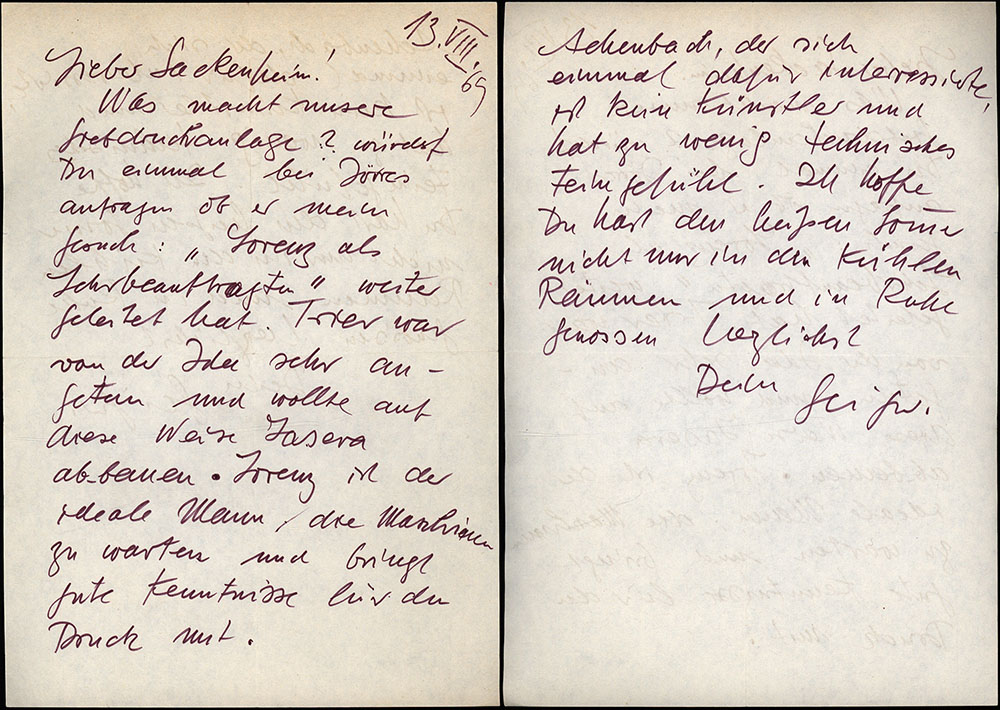 13. VIII. 69
Lieber Sackenheim!
Was macht unsere
Siebdruckanlage? würdest
Du einmal bei Jörres
anfragen ob er mein
Gesuch: „Lorenz als
Lehrbeauftragten" weiter
geleitet hat. Trier war
von der Idee sehr an-
getan und wollte auf
diese Weise
abbauen. Lorenz ist der
ideale Mann, die Maschinen
zu warten und bringt
gute Kenntnisse für den
Druck mit.
Achenbach, der sich
einmal dafür interressierte,
ist kein Künstler und
hat zu wenig technisches
Feingefühl. Ich hoffe
Du hast den heißen Somer
nicht nur in den Kühlen
Räumen und in Ruhe
genossen herzlichst
Dein